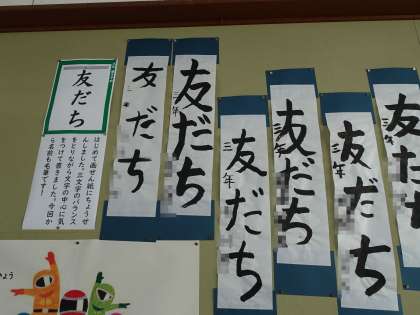 友だち
はじめて画せん紙にちょうせ
んしました。三文字のバランス
をとりながら文字の中心に気
をつけて書きました。今回か
ら名前も毛筆です!
友だち
友だち
三年
友だち
三年
友だち
三年
友だち
三年
友だち
三年